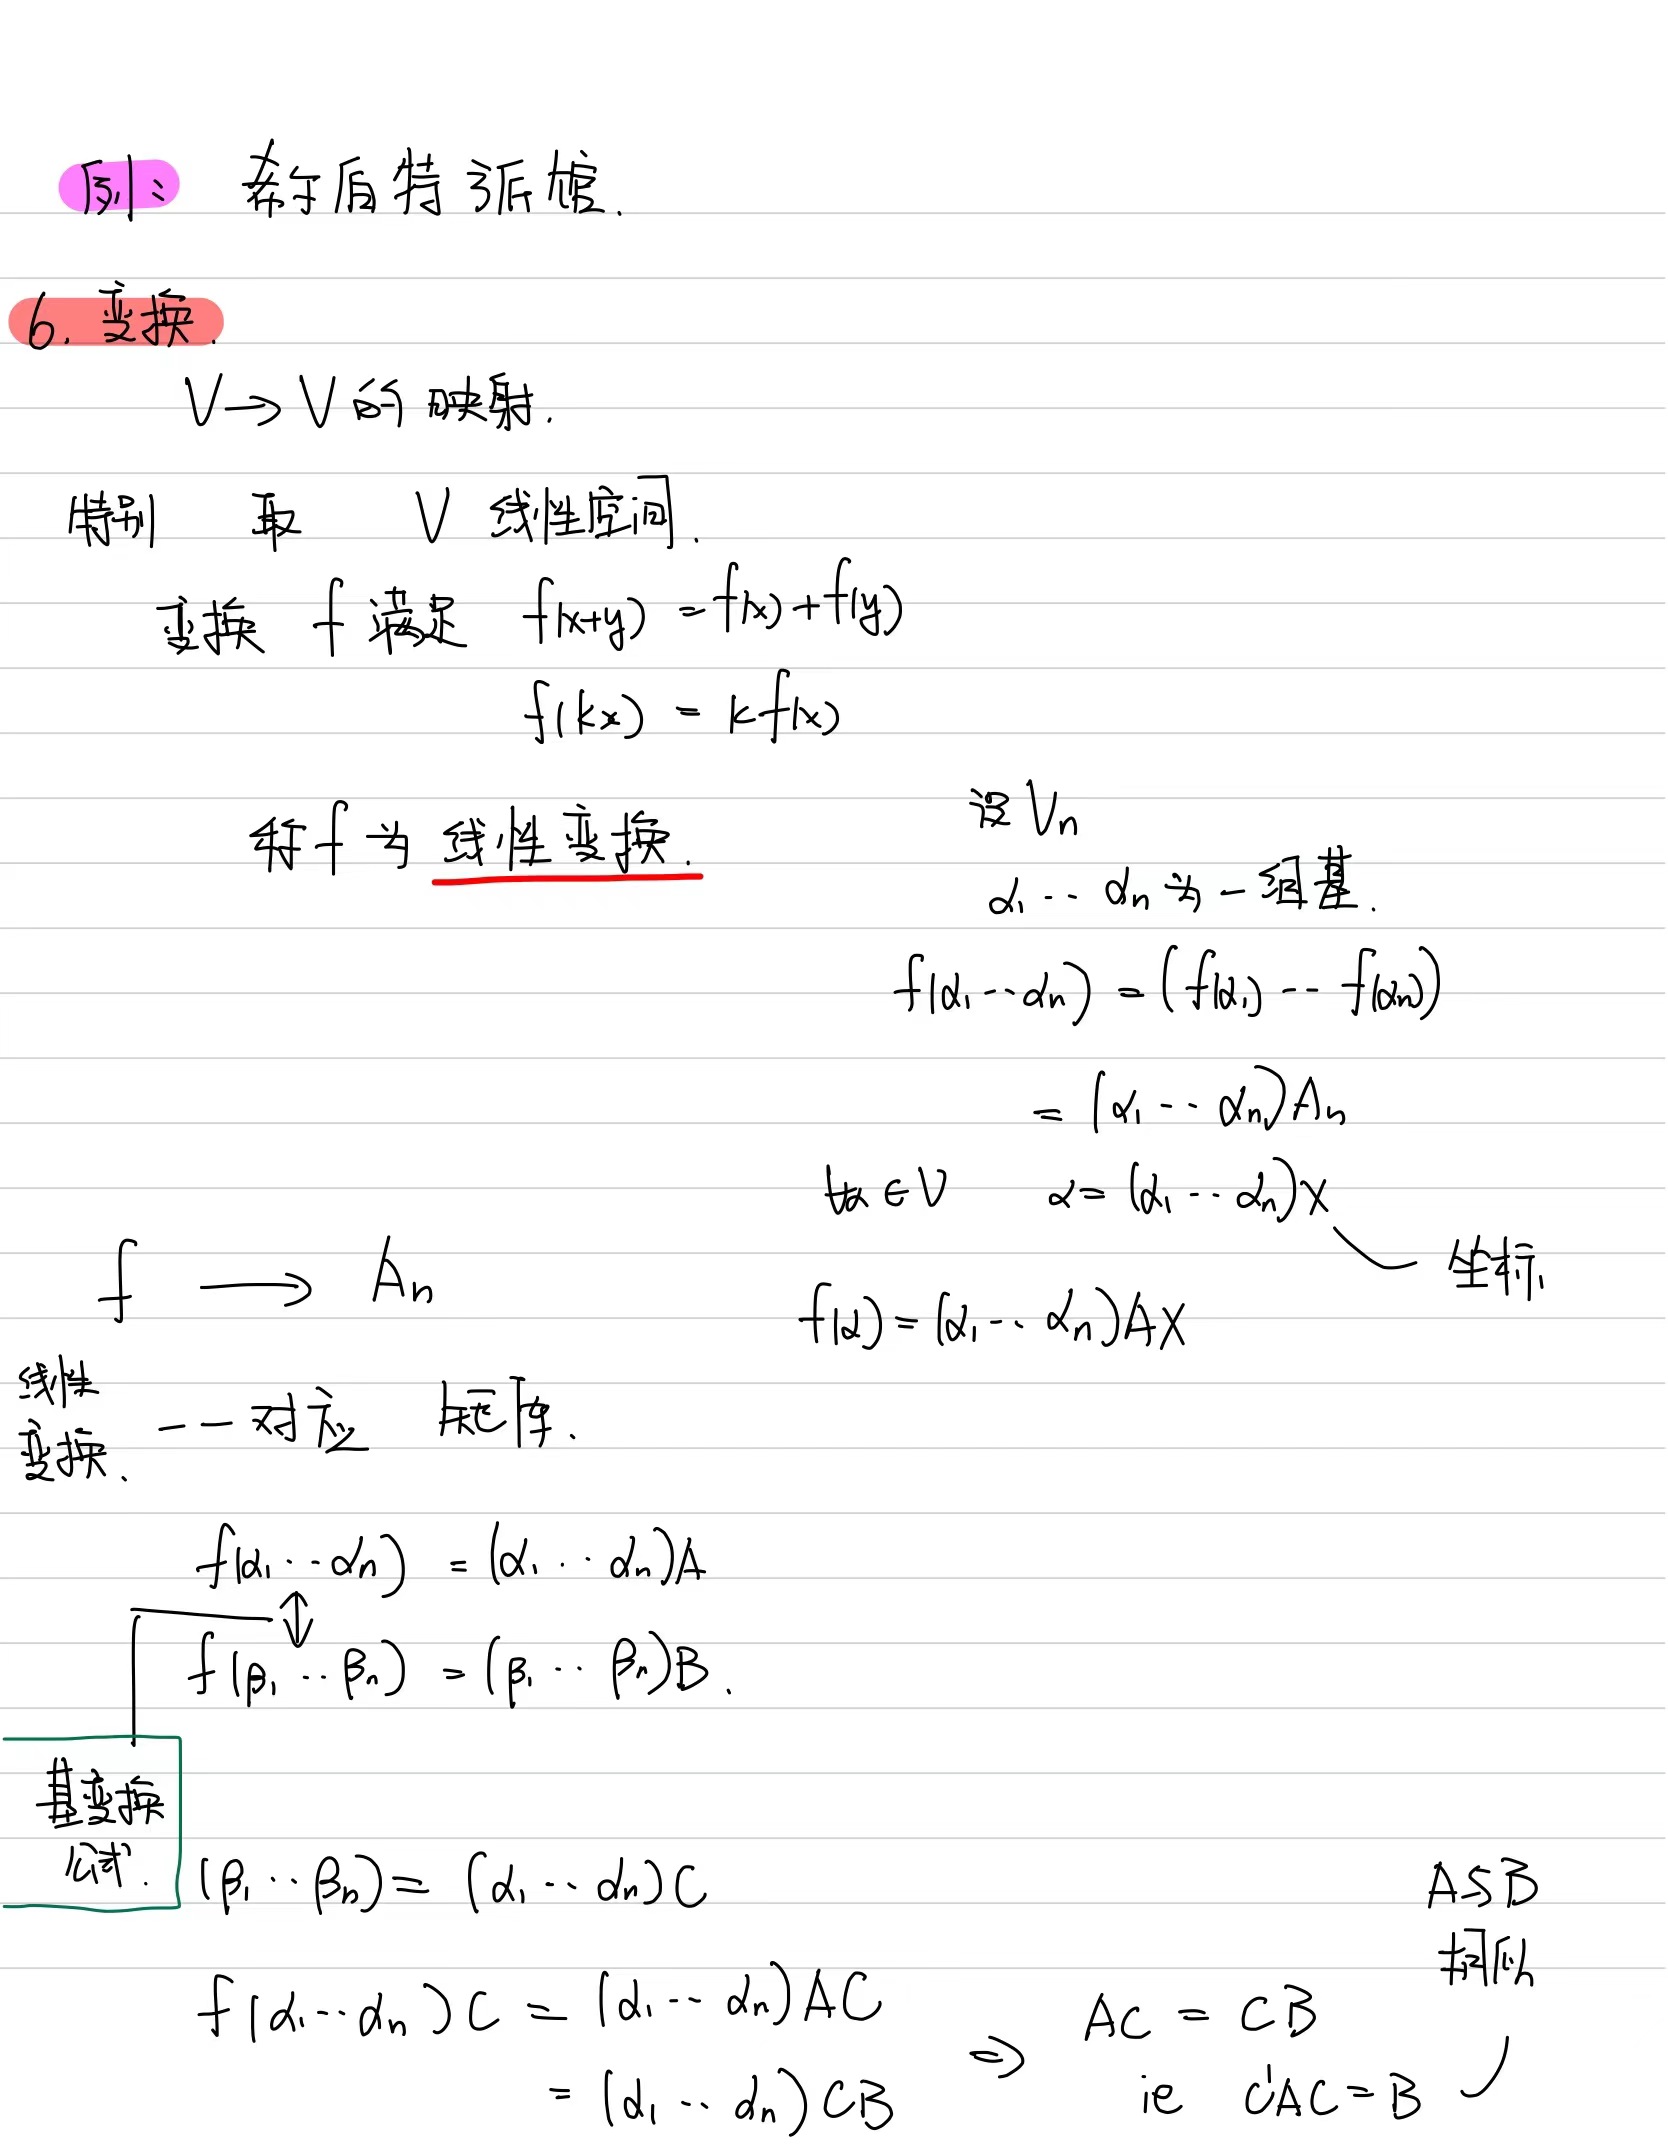 例: 希尔盾特 旅馆.
6. 变换.
V → V 的 映射.
特别 取 V 线性空间.
变换 f 满足 f(x+y) = f(x) + f(y)
f(kx) = kf(x)
称 f 为 线性变换.
设 Vn
α₁ ‥ αn 为一组基.
f(α₁ ‥ αn) = (f(α₁) ‥ f(αn))
= (α₁ ‥ αn)An
∀α ∈ V α = (α₁ ‥ αn)X
坐标
f(α) = (α₁ ‥ αn)AX
f → An
线性
变换. 一一对应 矩阵.
f(α₁ ‥ αn) = (α₁ ‥ αn)A
↕
f(β₁ ‥ βn) = (β₁ ‥ βn)B.
基变换
公式.
(β₁ ‥ βn) = (α₁ ‥ αn)C
f(α₁ ‥ αn)C = (α₁ ‥ αn)AC
= (α₁ ‥ αn)CB
⇒ AC = CB
ie C⁻¹AC = B
A S B
相似